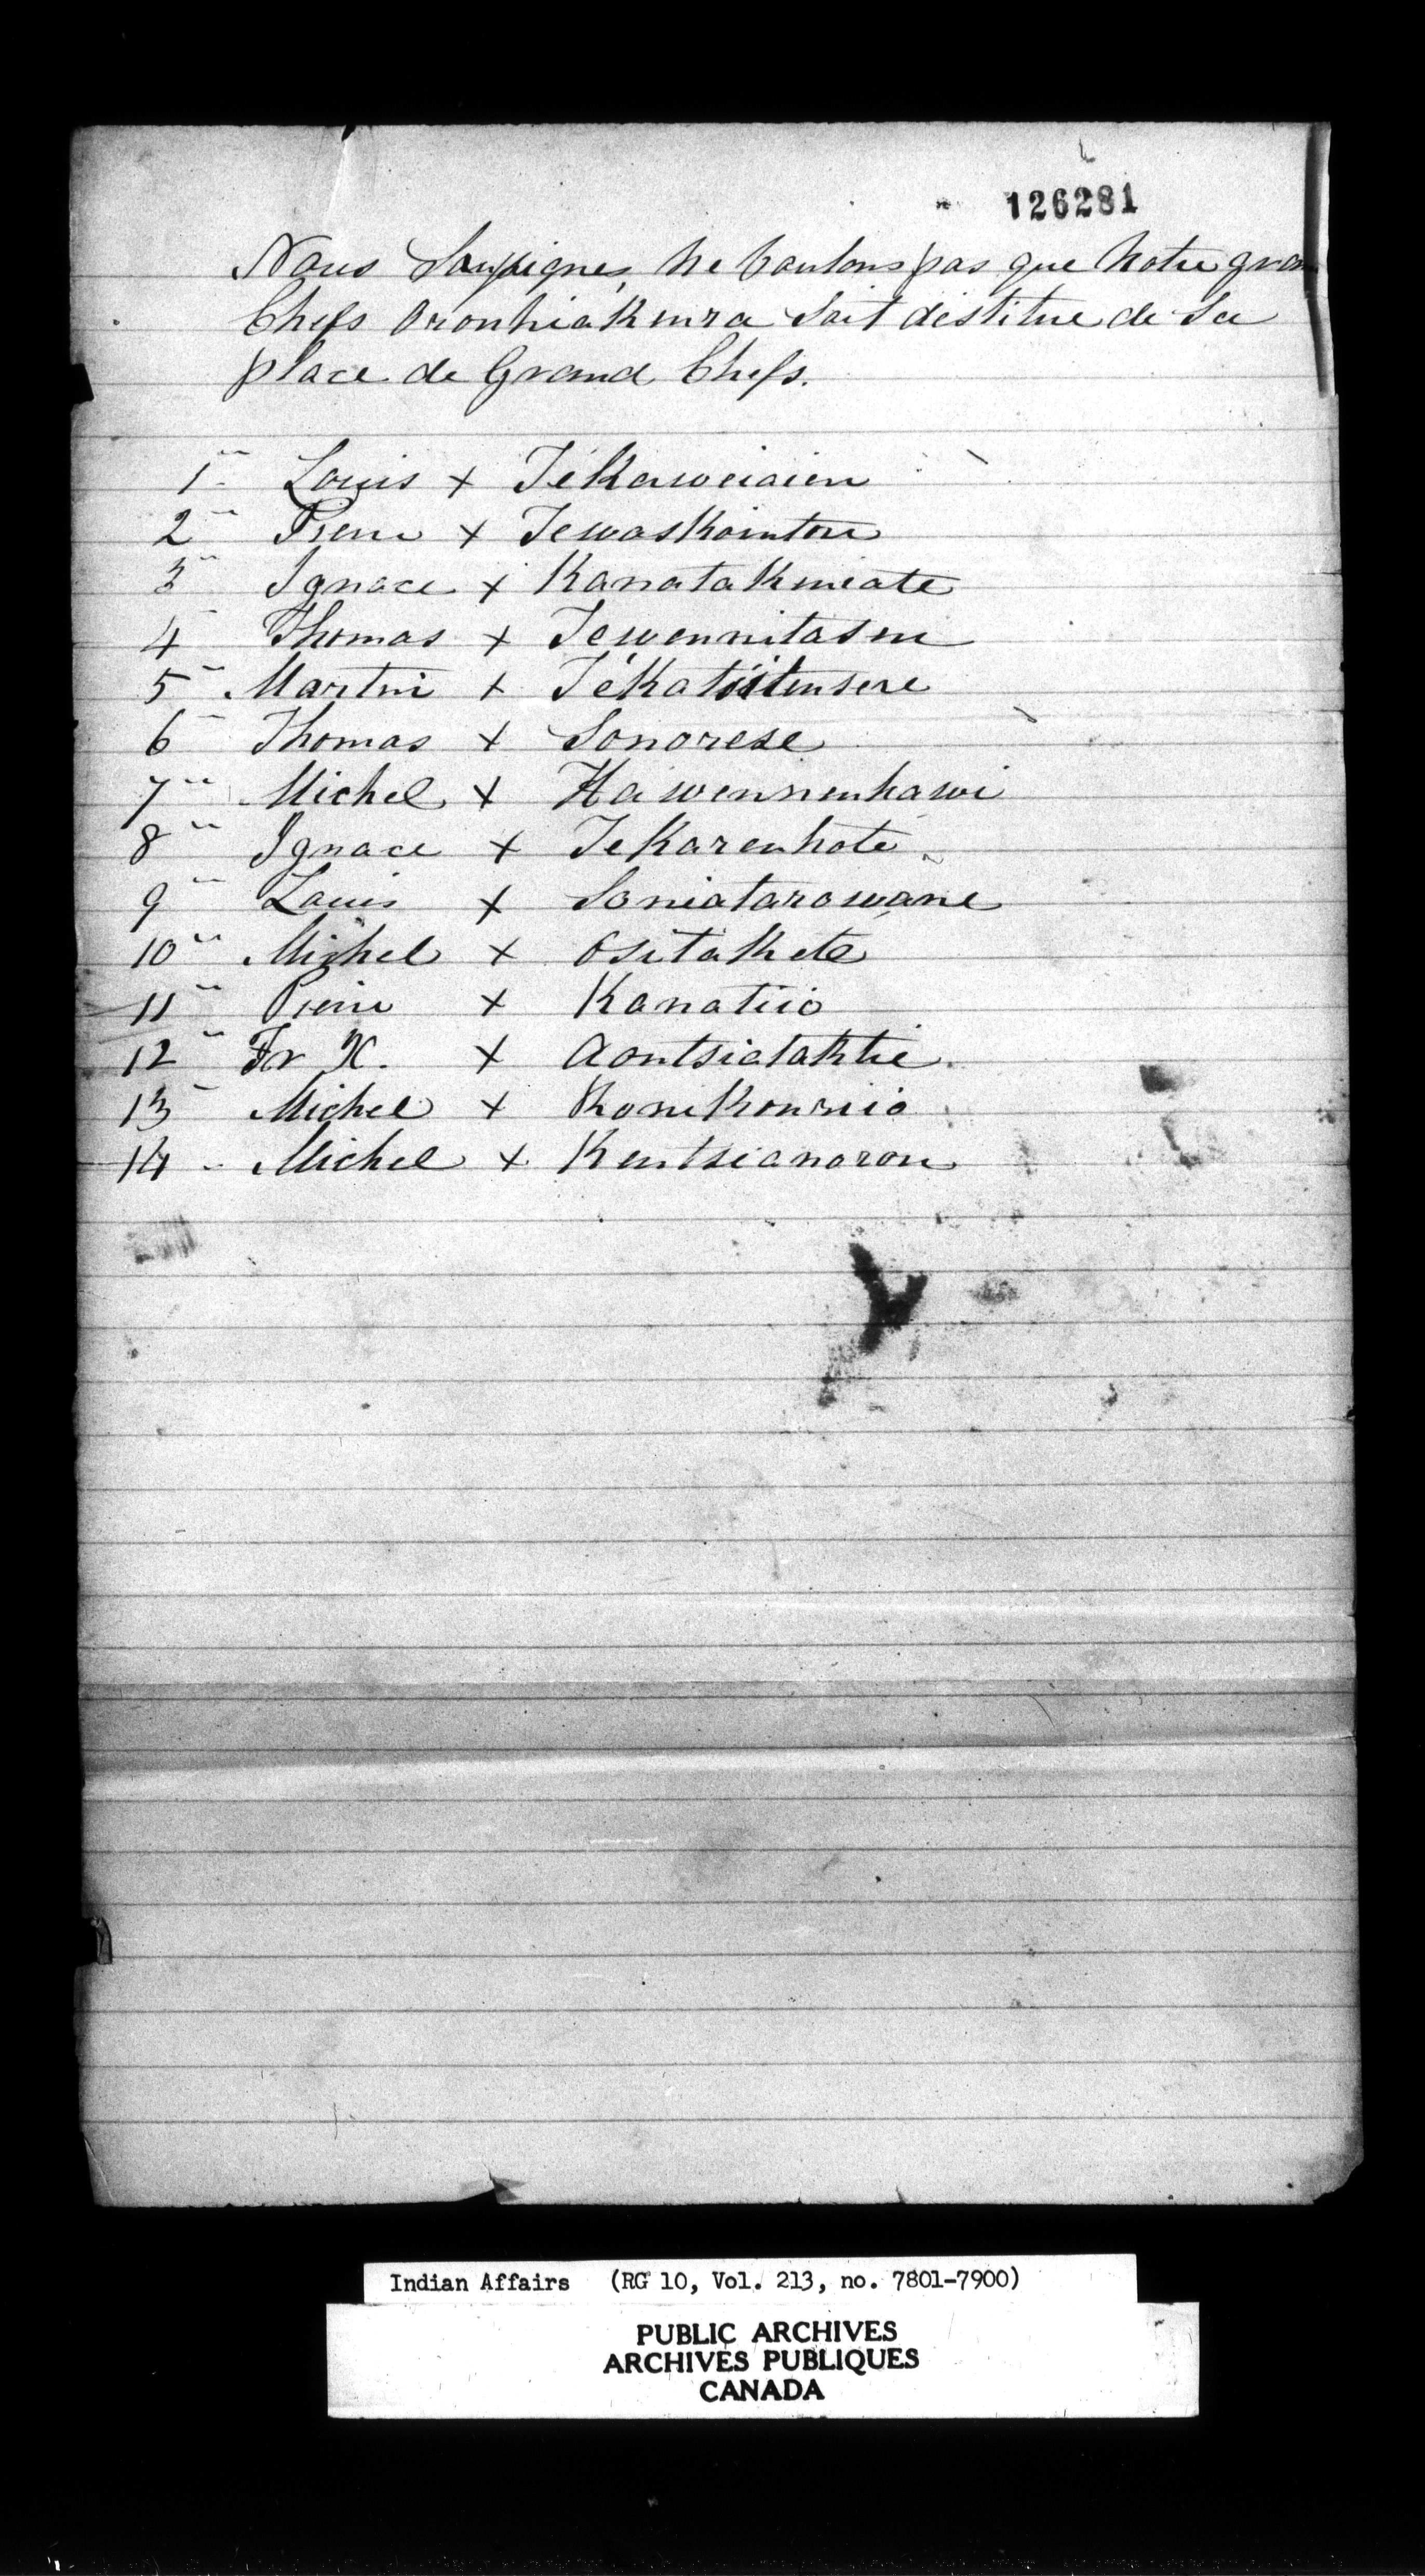 126281
Nous Soussignes, ne voulons pas que notre gran
Chefs Oronhiakenra soit destitue de sa
place de Grand Chefs.
1 Louis + Tékaweiaien
2 Pierre + Tewaskointon
3 Ignace + Kanatakeniate
4 Thomas + Tewennitasen
5 Martin + Tékatsitensere
6 Thomas + Sonorese
7 Michel + Hawennenhawi
8 Ignace + Tekarenhote
9 Louis + Soniatarowane
10 Michel + Ositakete
11 Pierre + Kanatiio
12 Fr X. + Aontsiatakhe
13 Michel + Ronikonriio
14 Michel + Kentsianoron
Indian Affairs (RG 10, Vol. 213, no. 7801-7900)
PUBLIC ARCHIVES
ARCHIVES PUBLIQUES
CANADA